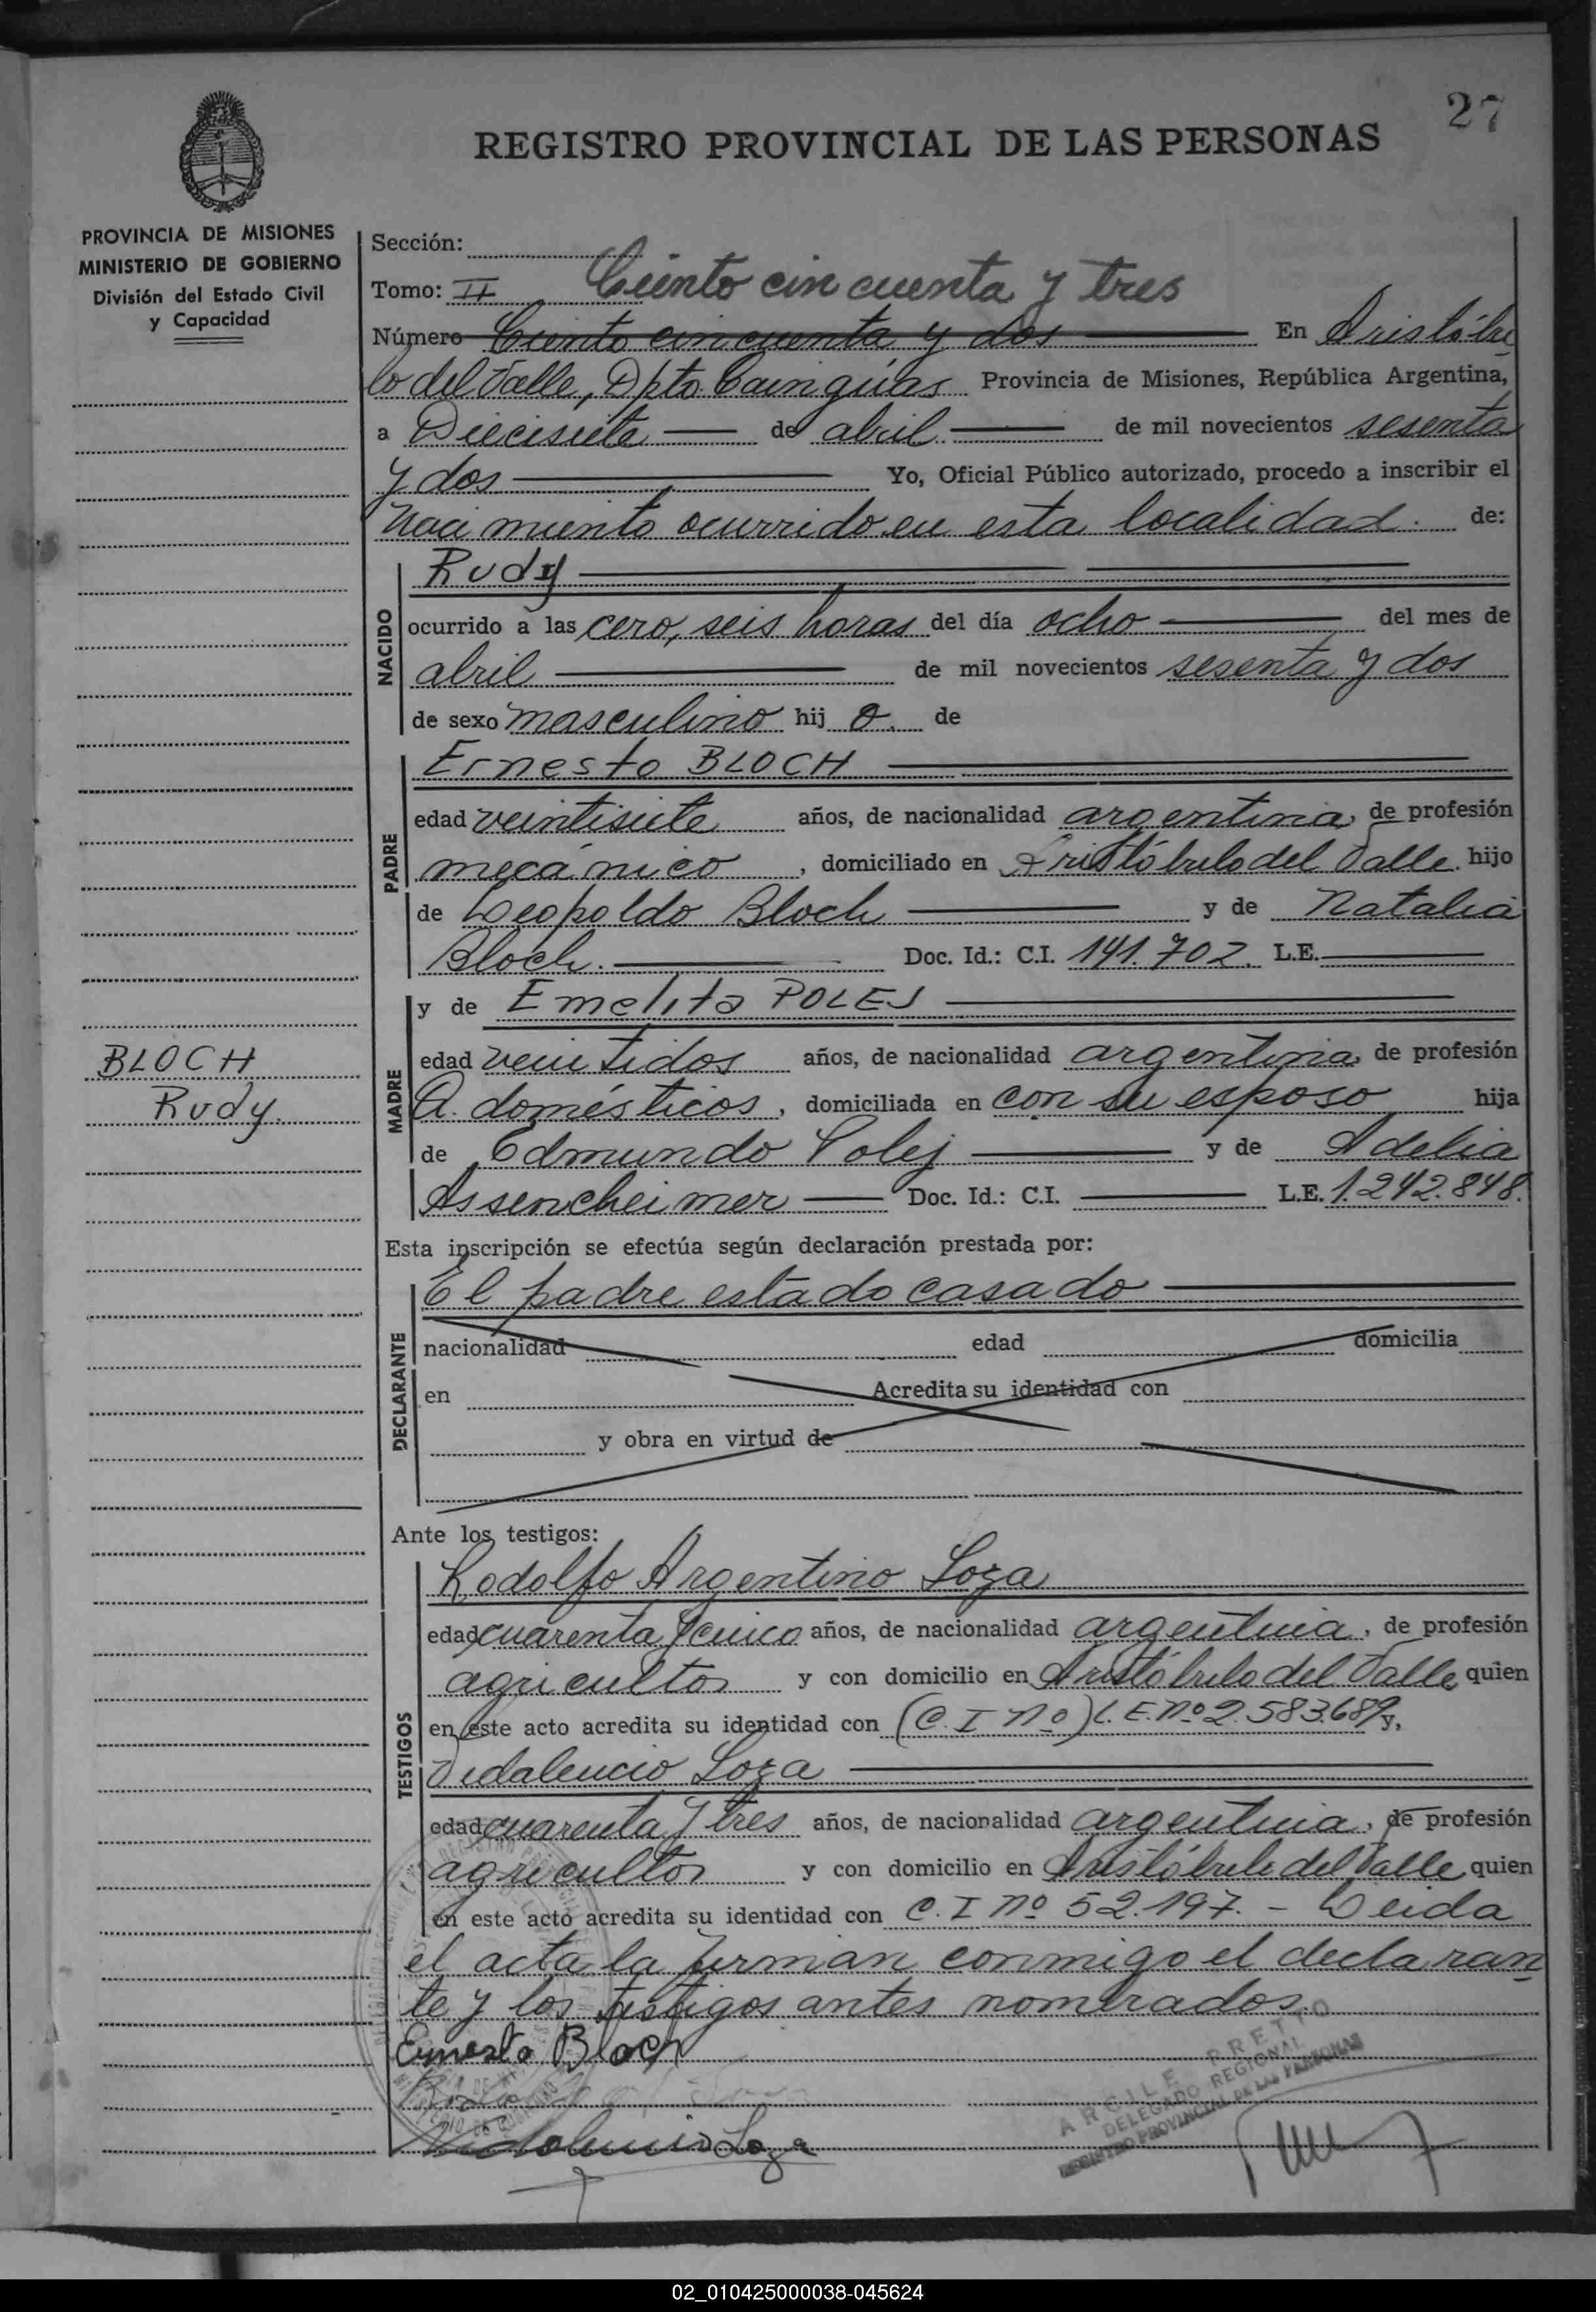 27
REGISTRO PROVINCIAL DE LAS PERSONAS
PROVINCIA DE MISIONES
MINISTERIO DE GOBIERNO
División del Estado Civil
y Capacidad
Sección:
Tomo: II Ciento cincuenta y tres
Número Ciento cincuenta y dos En Aristóbu
lo del Valle, Dpto. Cainguas Provincia de Misiones, República Argentina,
a Diecisiete de abril de mil novecientos sesenta
y dos Yo, Oficial Público autorizado, procedo a inscribir el
Nacimiento ocurrido en esta localidad. de:
NACIDO
Rudy
ocurrido a las cero, seis horas del día ocho del mes de
abril de mil novecientos sesenta y dos
de sexo masculino hijo. de
PADRE
Ernesto BLOCH
edad veintisiete años, de nacionalidad argentina, de profesión
mecánico, domiciliado en Aristóbulo del Valle. hijo
de Leopoldo Bloch y de Natalia
Bloch. Doc. Id.: C.I. 141.702. L.E.
MADRE
y de Emelita POLEJ
edad veintidos años, de nacionalidad argentina, de profesión
Q. domésticos, domiciliada en con su esposo hija
de Edmundo Polej y de Adelia
Assencheimer Doc. Id.: C.I. L.E. 1.242.848.
BLOCH
Rudy.
Esta inscripción se efectúa según declaración prestada por:
DECLARANTE
El padre estado casado
nacionalidad edad domicilia
en Acredita su identidad con
y obra en virtud de
Ante los testigos:
TESTIGOS
Rodolfo Argentino Loza
edad cuarenta y cinco años, de nacionalidad argentina, de profesión
agricultor y con domicilio en Aristóbulo del Valle quien
en este acto acredita su identidad con (C. I nº) L.E. nº 2.583.689 y,
Vidalencio Loza
edad cuarenta y tres años, de nacionalidad argentina, de profesión
agricultor y con domicilio en Aristóbulo del Valle quien
en este acto acredita su identidad con C. I nº 52.197. - Leida
el acta la firman conmigo el declaran
te y los testigos antes nombrados.
Ernesto Bloch
Loza
DELEGADO REGIONAL
REGISTRO PROVINCIAL DE LAS PERSONAS
02_010425000038-045624